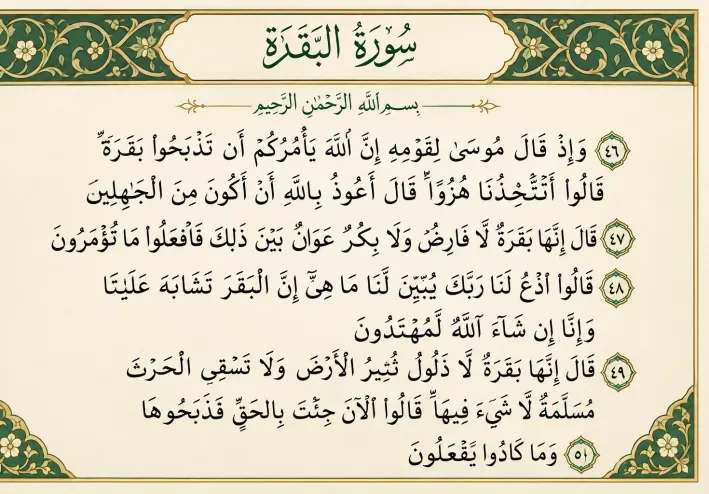 سُورَةُ البَقَرَة
بِسمِ اللَّهِ الرَّحْمَٰنِ الرَّحِيمِ
٤٦ وَإِذْ قَالَ مُوسَىٰ لِقَوْمِهِ إِنَّ اللَّهَ يَأْمُرُكُمْ أَن تَذْبَحُوا بَقَرَةً
قَالُوا أَتَتَّخِذُنَا هُزُوًا قَالَ أَعُوذُ بِاللَّهِ أَنْ أَكُونَ مِنَ الْجَٰهِلِينَ
٤٧ قَالَ إِنَّهَا بَقَرَةٌ لَّا فَارِضٌ وَلَا بِكْرٌ عَوَانٌ بَيْنَ ذَلِكَ فَافْعَلُوا مَا تُؤْمَرُونَ
٤٨ قَالُوا ادْعُ لَنَا رَبَّكَ يُبَيِّن لَّنَا مَا هِيَ إِنَّ الْبَقَرَ تَشَابَهَ عَلَيْنَا
وَإِنَّا إِن شَآءَ اللَّهُ لَمُهْتَدُونَ
٤٩ قَالَ إِنَّهَا بَقَرَةٌ لَّا ذَلُولٌ تُثِيرُ الْأَرْضَ وَلَا تَسْقِي الْحَرْثَ
مُسَلَّمَةٌ لَّا شَيْءَ فِيهَا قَالُوا الْآنَ جِئْتَ بِالحَقِّ فَذَبَحُوهَا
٥١ وَمَا كَادُوا يَفْعَلُونَ